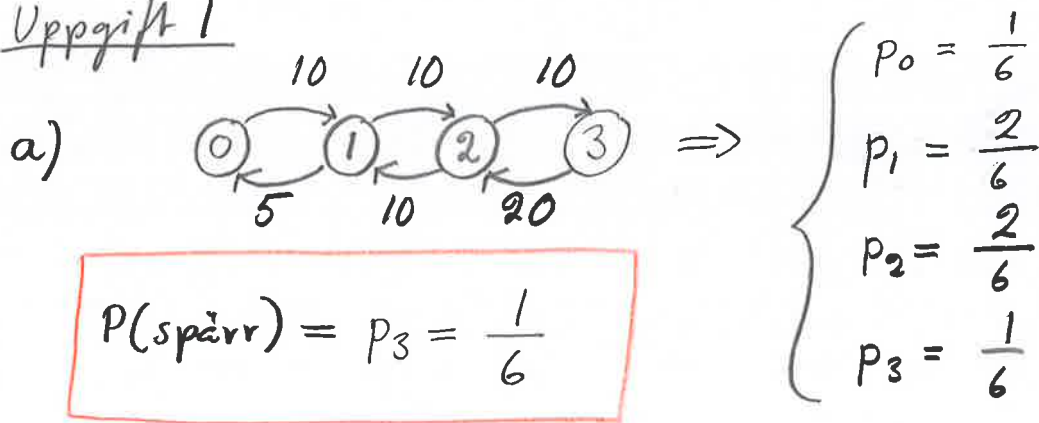 Uppgift 1
10 10 10
a) 0 1 2 3 ⇒
5 10 20
p₀ = 1/6
p₁ = 2/6
p₂ = 2/6
p₃ = 1/6
P(spärr) = p₃ = 1/6